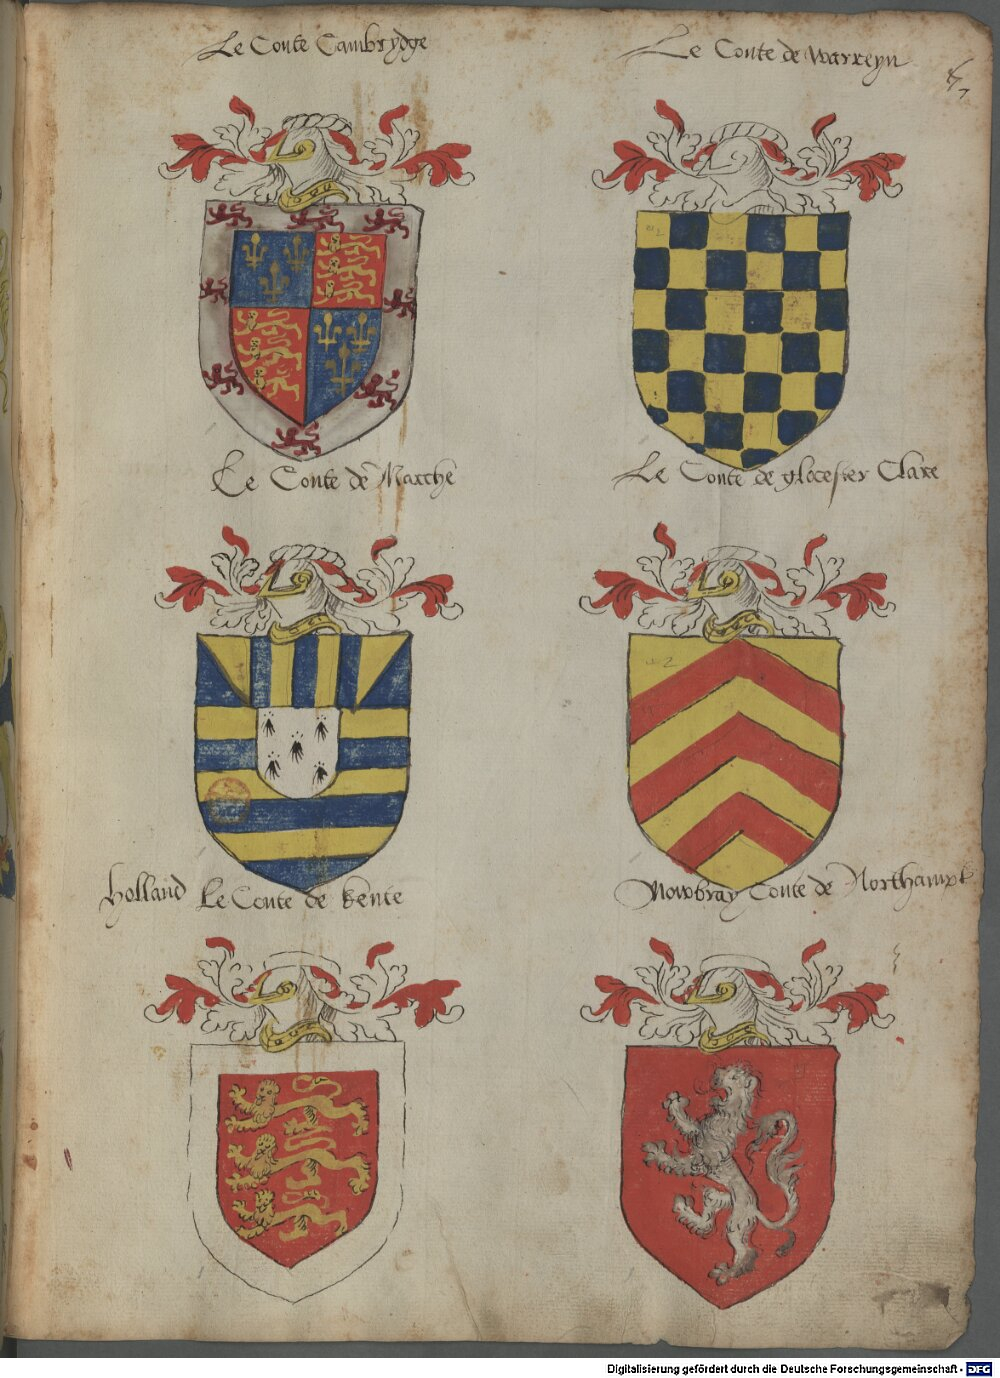 Le Conte Cambrydge
Le Conte de Warreyn
Le Conte de Marche
Le Conte de glocester Clare
Holland Le Conte de Kente
Mowbray Conte de Northampt
Digitalisierung gefördert durch die Deutsche Forschungsgemeinschaft - DFG